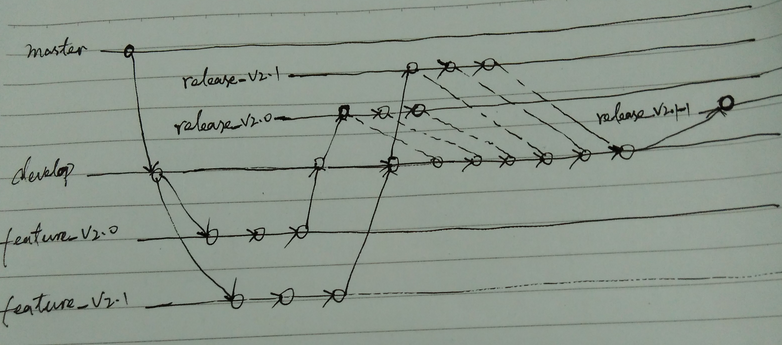 master
release_v2.1
release_v2.0
release_v2.1-1
develop
feature_v2.0
feature_v2.1